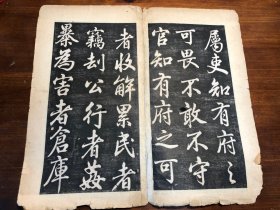 屬吏知有府之
可畏不敢不守
官知有府之可
者收解累民者
竊刦公行者姦
暴為害者倉庫